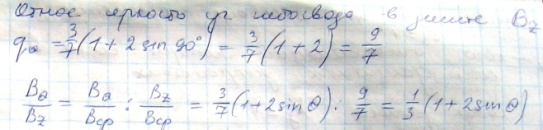 Относ яркость уч небосвода в зените B_z
q_θ = 3/7 (1 + 2 sin 90°) = 3/7 (1 + 2) = 9/7
B_θ/B_z = B_θ/B_ср : B_z/B_ср = 3/7 (1 + 2 sin θ) · 9/7 = 1/3 (1 + 2 sin θ)